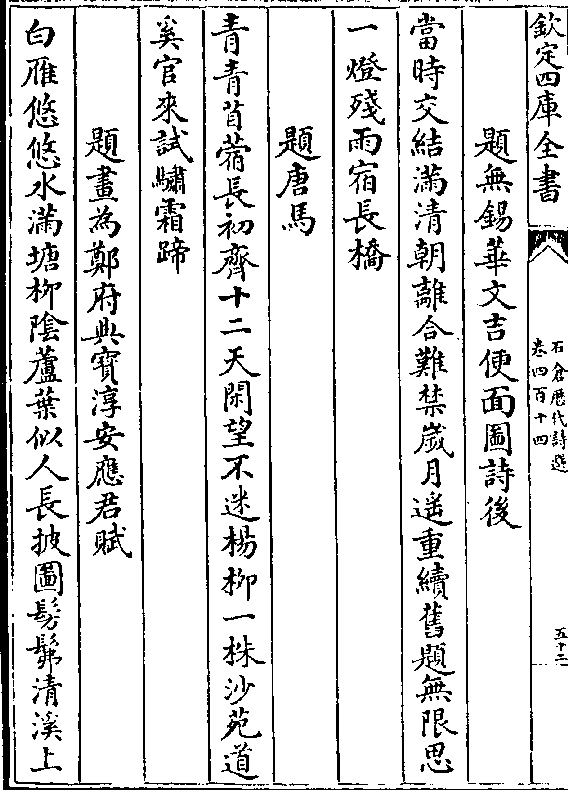 欽定四庫全書
石倉歴代詩選
卷四百十四
五十二
題無錫華文吉便面圖詩後
當時交結滿清朝離合難禁歲月遥重續舊題無限思
一燈殘雨宿長橋
題唐馬
青青苜蓿長初齊十二天閑望不迷楊柳一株沙苑道
奚官來試驌霜蹄
題畫為鄭府典寳淳安應君賦
白雁悠悠水滿塘柳陰蘆葉似人長披圖髣髴清溪上